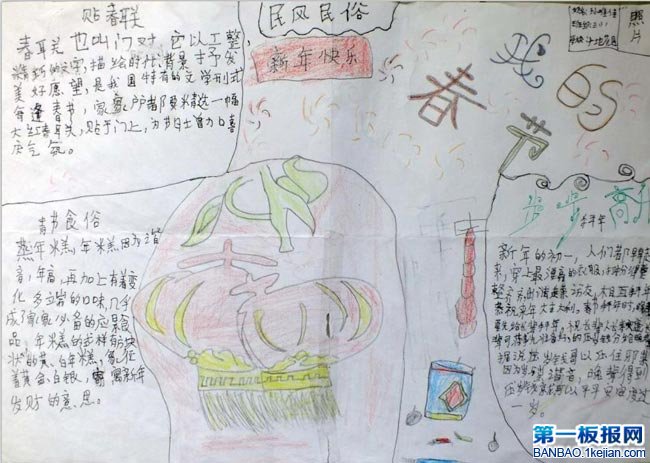 贴春联
春联 也叫门对 它以工整
美好愿望，是我国特有的文学形式
每逢春节，家家户户都要精选一幅
大红春联，贴于门上，为节日增加喜
庆气氛。
民风民俗
新年快乐
我的
春节
照
片
春节食俗
蒸年糕，年糕因为谐
音年高，再加上有着变
化多端的口味，几乎
成了家家必备的应景食
品。年糕的式样有方块
状的黄、白年糕，象征
着黄金、白银，寄寓新年
发财的意思。
步步高
拜年
新年的初一，人们都早早起
来，穿上最漂亮的衣服，打扮得整整
因为岁与祟谐音，晚辈得到
压岁钱就可以平平安安度过
一岁。
第一板报网
BANBAO.1kejian.com